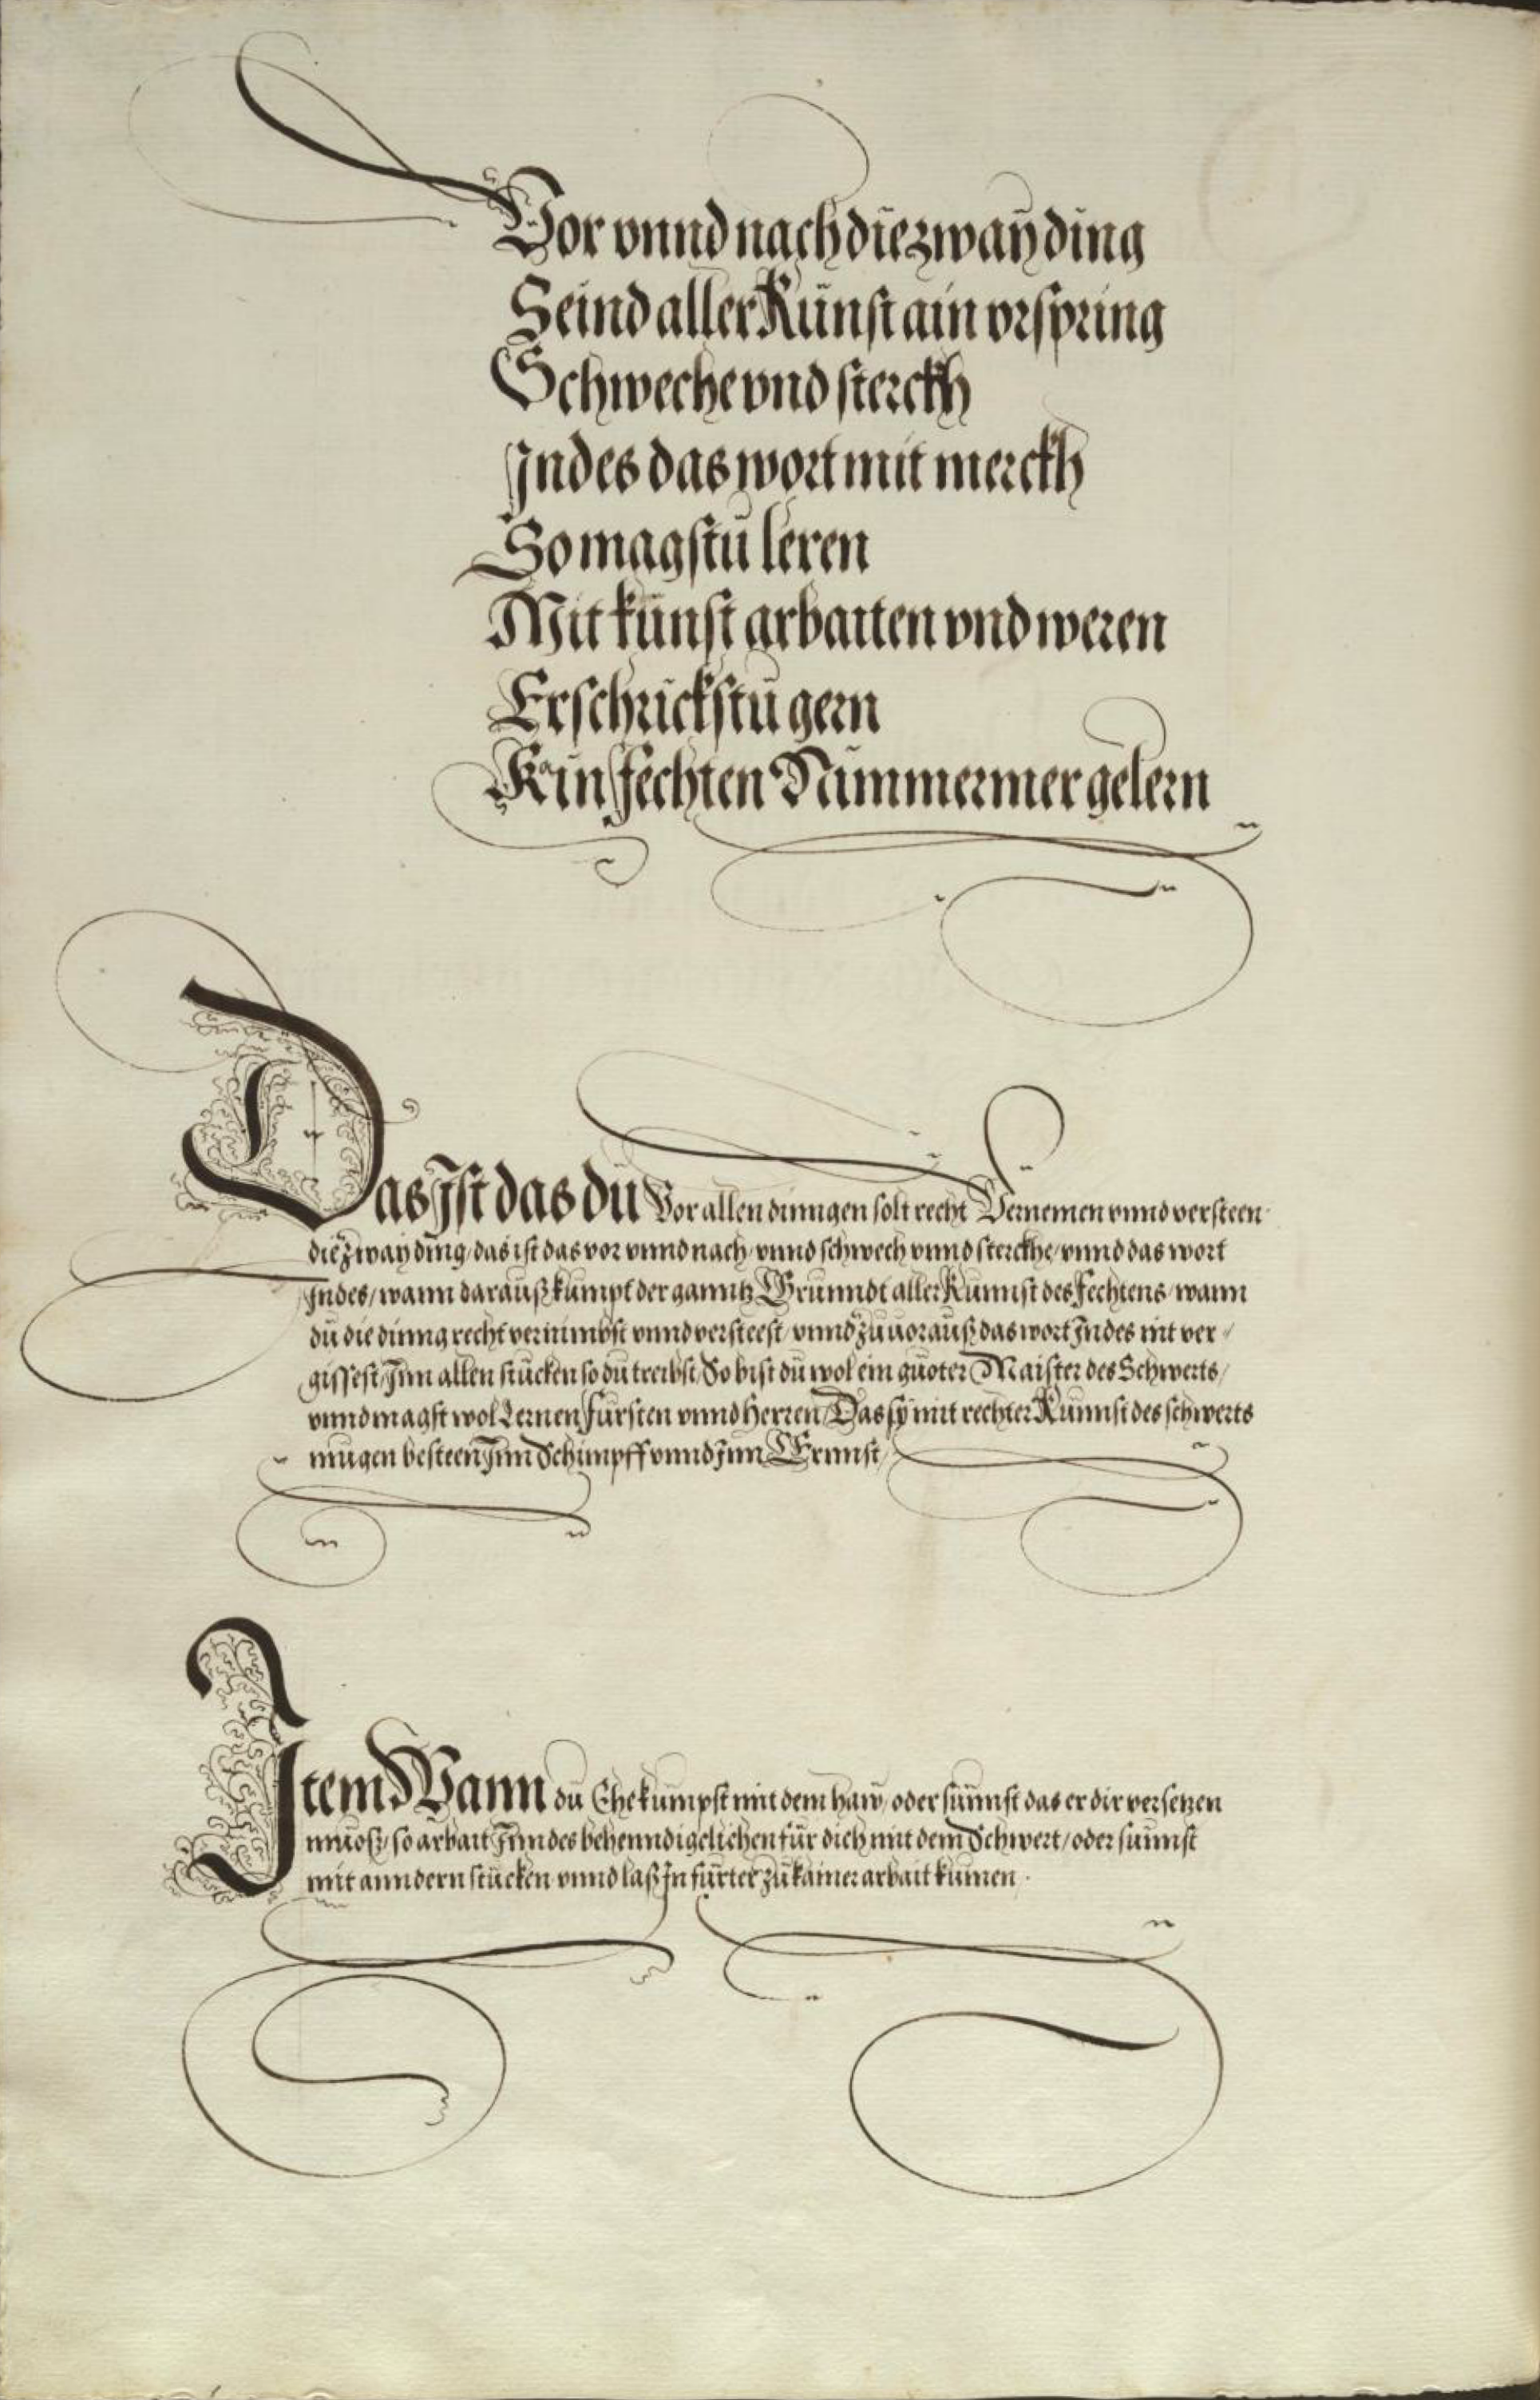 Vor vnnd nach die zwaÿ ding
Seind aller Kunst ain vrspring
Schweche vnd sterckh
Indes das wort mit merckh
So magstu leren
Mit kunst arbaiten vnd weren
Erschrickstu gern
Kain fechten Nimmermer gelern
Das Ist das du Vor allen dinngen solt recht Vernemen vnnd versteen
die zwaÿ ding, das ist das vor vnnd nach, vnnd schwech vnnd sterckhe, vnnd das wort
Indes, wann darauß kumpt der ganntz Grunndt aller Kunnst des Fechtens, wann
du die dinng recht vernimbst vnnd versteest, vnnd zuuorauß das wort Indes nit ver-
gissest, Inn allen stucken so du treibst, So bist du wol ein guoter Maister des Schwerts,
vnnd magst wol Lernen Fürsten vnnd Herren, Das sÿ mit rechter Kunnst des schwerts
mugen besteen Inn Schimpff vnnd Inn Ernnst,
Item Wann du Ehe kumpst mit dem haw, oder sunnst das er dir versetzen
muoß, so arbait Inndes behenndigelichen für dich mit dem Schwert, oder sunnst
mit anndern stucken vnnd laß In fürter zu kainer arbait kumen.